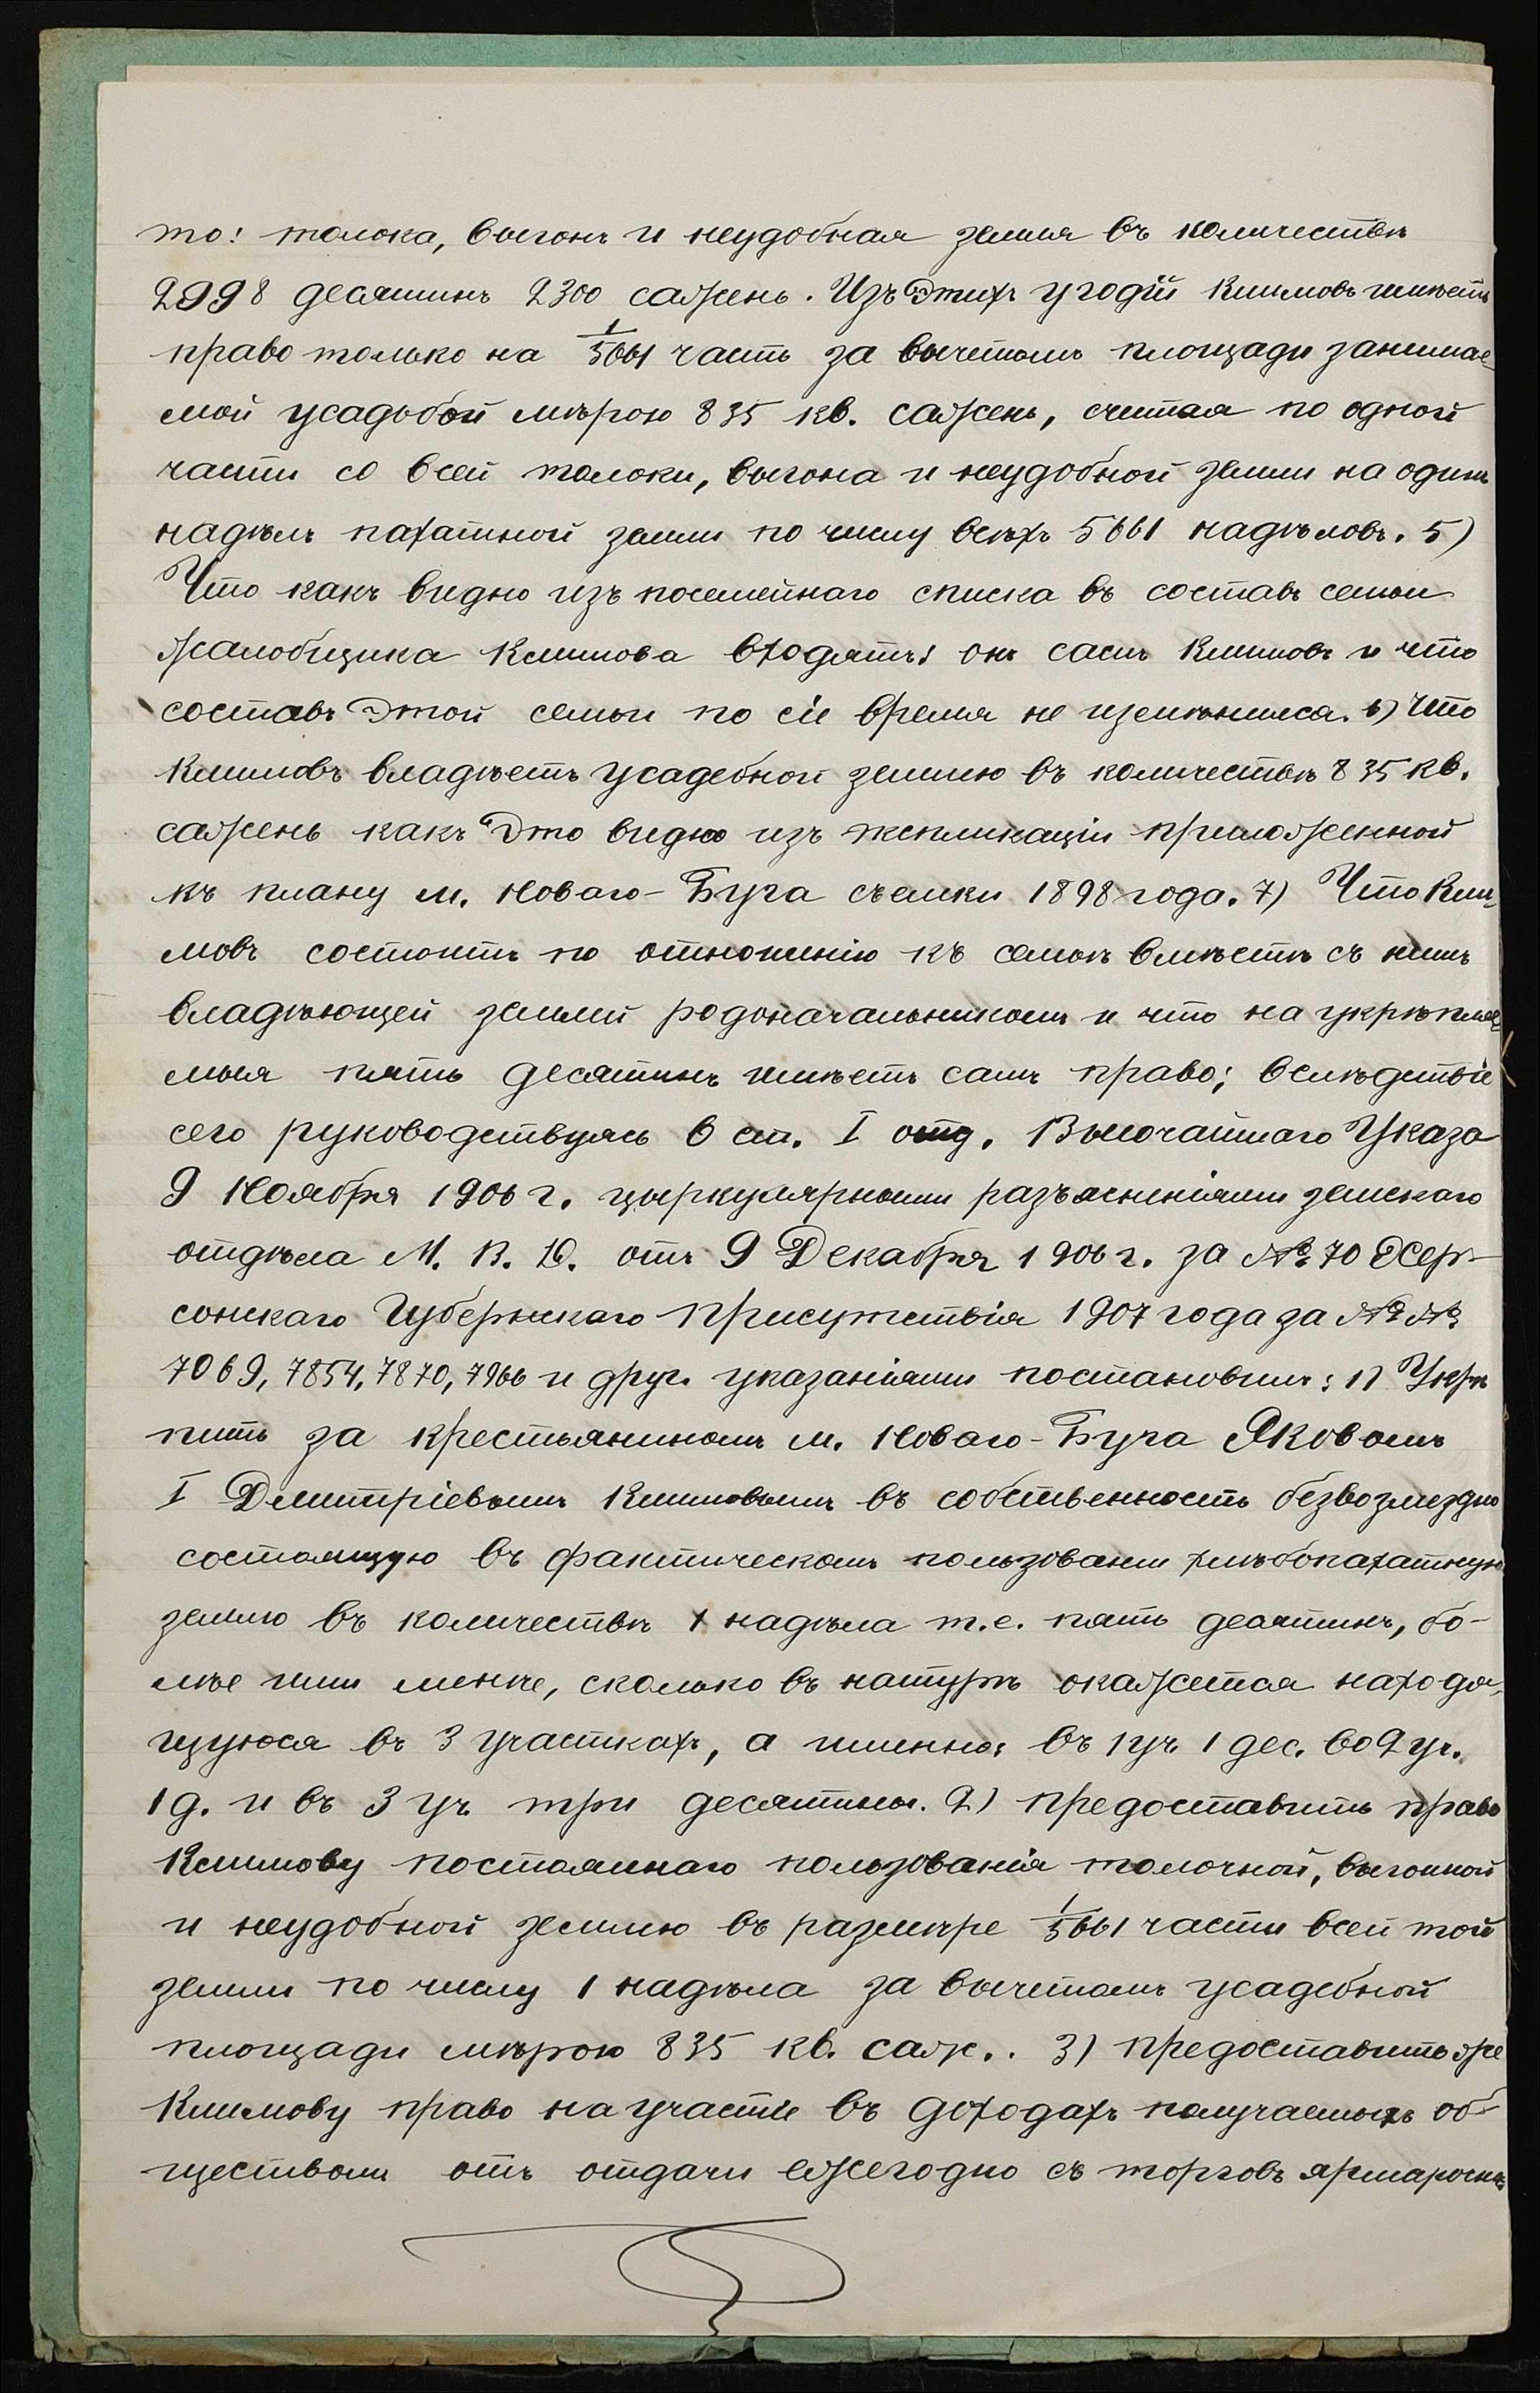 то: толока, выгонъ и неудобная земля въ количествѣ
2998 десятинъ 2300 сажень. Изъ этихъ угодій Климовъ имѣетъ
право только на 1/5661 часть за вычетомъ площади занимае-
мой усадьбой мѣрою 835 кв. сажень, считая по одной
части со всей толоки, выгона и неудобной земли на одинъ
надѣлъ пахатной земли по числу всѣхъ 5661 надѣловъ. 5)
Что какъ видно изъ посемейнаго списка въ составъ семьи
жалобщика Климова входятъ: онъ самъ Климовъ и что
составъ этой семьи по сіе время не измѣнился. 6) Что
Климовъ владѣетъ усадебной землею въ количествѣ 835 кв.
сажень какъ это видно изъ экспликаціи приложенной
къ плану м. Новаго-Буга съемки 1898 года. 7) Что Кли-
мовъ состоитъ по отношенію къ семьѣ вмѣстѣ съ нимъ
владѣющей землей родоначальникомъ и что на укрѣпляе-
мыя пять десятинъ имѣетъ самъ право; вслѣдствіе
сего руководствуясь 6 ст. I отд. Высочайшаго Указа
9 Ноября 1906 г. циркулярными разъясненіями земскаго
отдѣла М. В. Д. отъ 9 Декабря 1906 г. за № 70 Хер-
сонскаго Губернскаго Присутствія 1907 года за №№
7069, 7854, 7870, 7966 и друг. указаніями постановилъ: 1) Укрѣ
пить за крестьяниномъ м. Новаго-Буга Яковомъ
I Дмитріевымъ Климовымъ въ собственность безвозмездно
состоящую въ фактическомъ пользованіи хлѣбопахатную
землю въ количествѣ 1 надѣла т.е. пять десятинъ, бо-
лѣе или менѣе, сколько въ натурѣ окажется находя-
щуюся въ 3 участкахъ, а именно: въ 1 уч. 1 дес. во 2 уч.
1 д. и въ 3 уч. три десятины. 2) предоставить право
Климову постояннаго пользованія толочной, выгонной
и неудобной землею въ размѣре 1/5661 части всей той
земли по числу 1 надѣла за вычетомъ усадебной
площади мѣрою 835 кв. саж.. 3) предоставить же
Климову право на участіе въ доходахъ получаемыхъ об-
ществомъ отъ отдачи ежегодно съ торговъ ярмарочн.